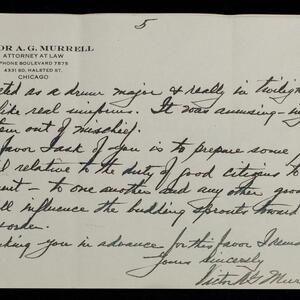 5
OR A. G. MURRELL
ATTORNEY AT LAW
PHONE BOULEVARD 7575
4331 SO. HALSTED ST.
CHICAGO
cted as a drum major & really in twilight
like real It was amusing
tem out of mischief.
favor I ask of you is to prepare some
l relative to the duty of good citizens to
nit - to one another and any other good
ll influence the budding sprouts toward
order.
king you in advance for this favor I rema
Yours Sincerely
Victor A G Mur